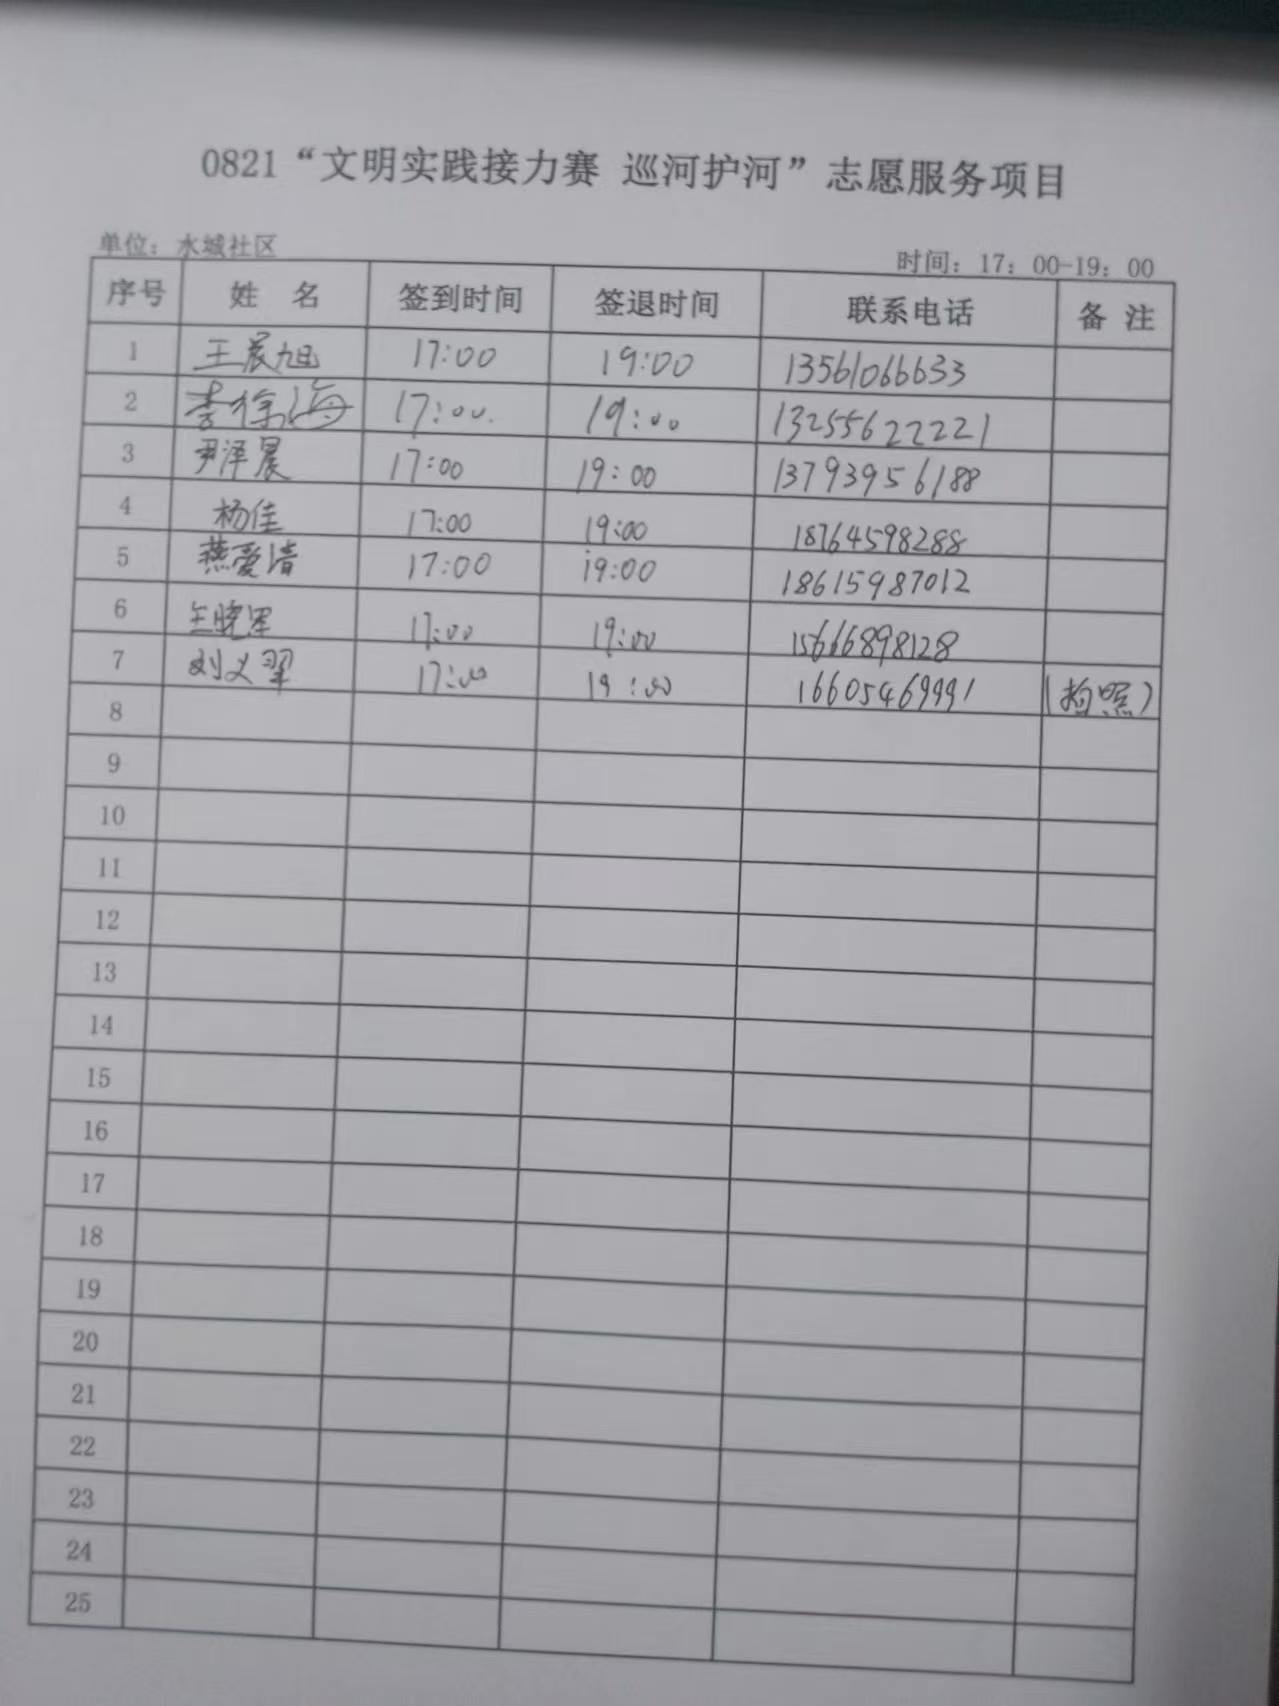 0821“文明实践接力赛 巡河护河”志愿服务项目
单位：水城社区
时间：17：00-19：00
序号 姓 名 签到时间 签退时间 联系电话 备 注
1 王晨旭 17:00 19:00 13561066633
2 李徐海 17:00. 19:00 13255622221
3 尹泽晨 17:00 19:00 13793956188
4 杨佳 17:00 19:00 18764598288
5 燕爱清 17:00 19:00 18615987012
6 王晓军 17:00 19:00 15666898128
7 刘义翠 17:00 19:00 16605469991 (拍照)
8
9
10
11
12
13
14
15
16
17
18
19
20
21
22
23
24
25